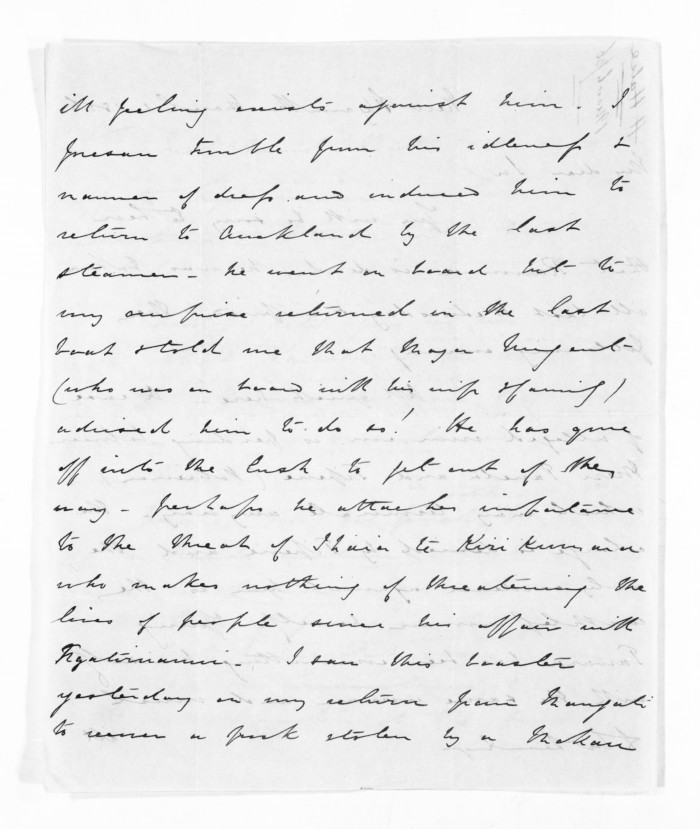 ill feeling exists against him. I
foresaw trouble from his idleness &
manner of dress and induced him to
return to Auckland by the last
steamer - he went on board but to
my surprise returned in the last
boat & told me that Major Nugent
(who was on board with his wife & family)
advised him to do so! He has gone
off into the bush to get out of the
way - perhaps he attaches importance
to the threat of Ihaia te Kiri Kumara
who makes nothing of threatening the
lives of people since his affair with
I saw this boaster
yesterday on my return from Mangati
to recover a stolen by a